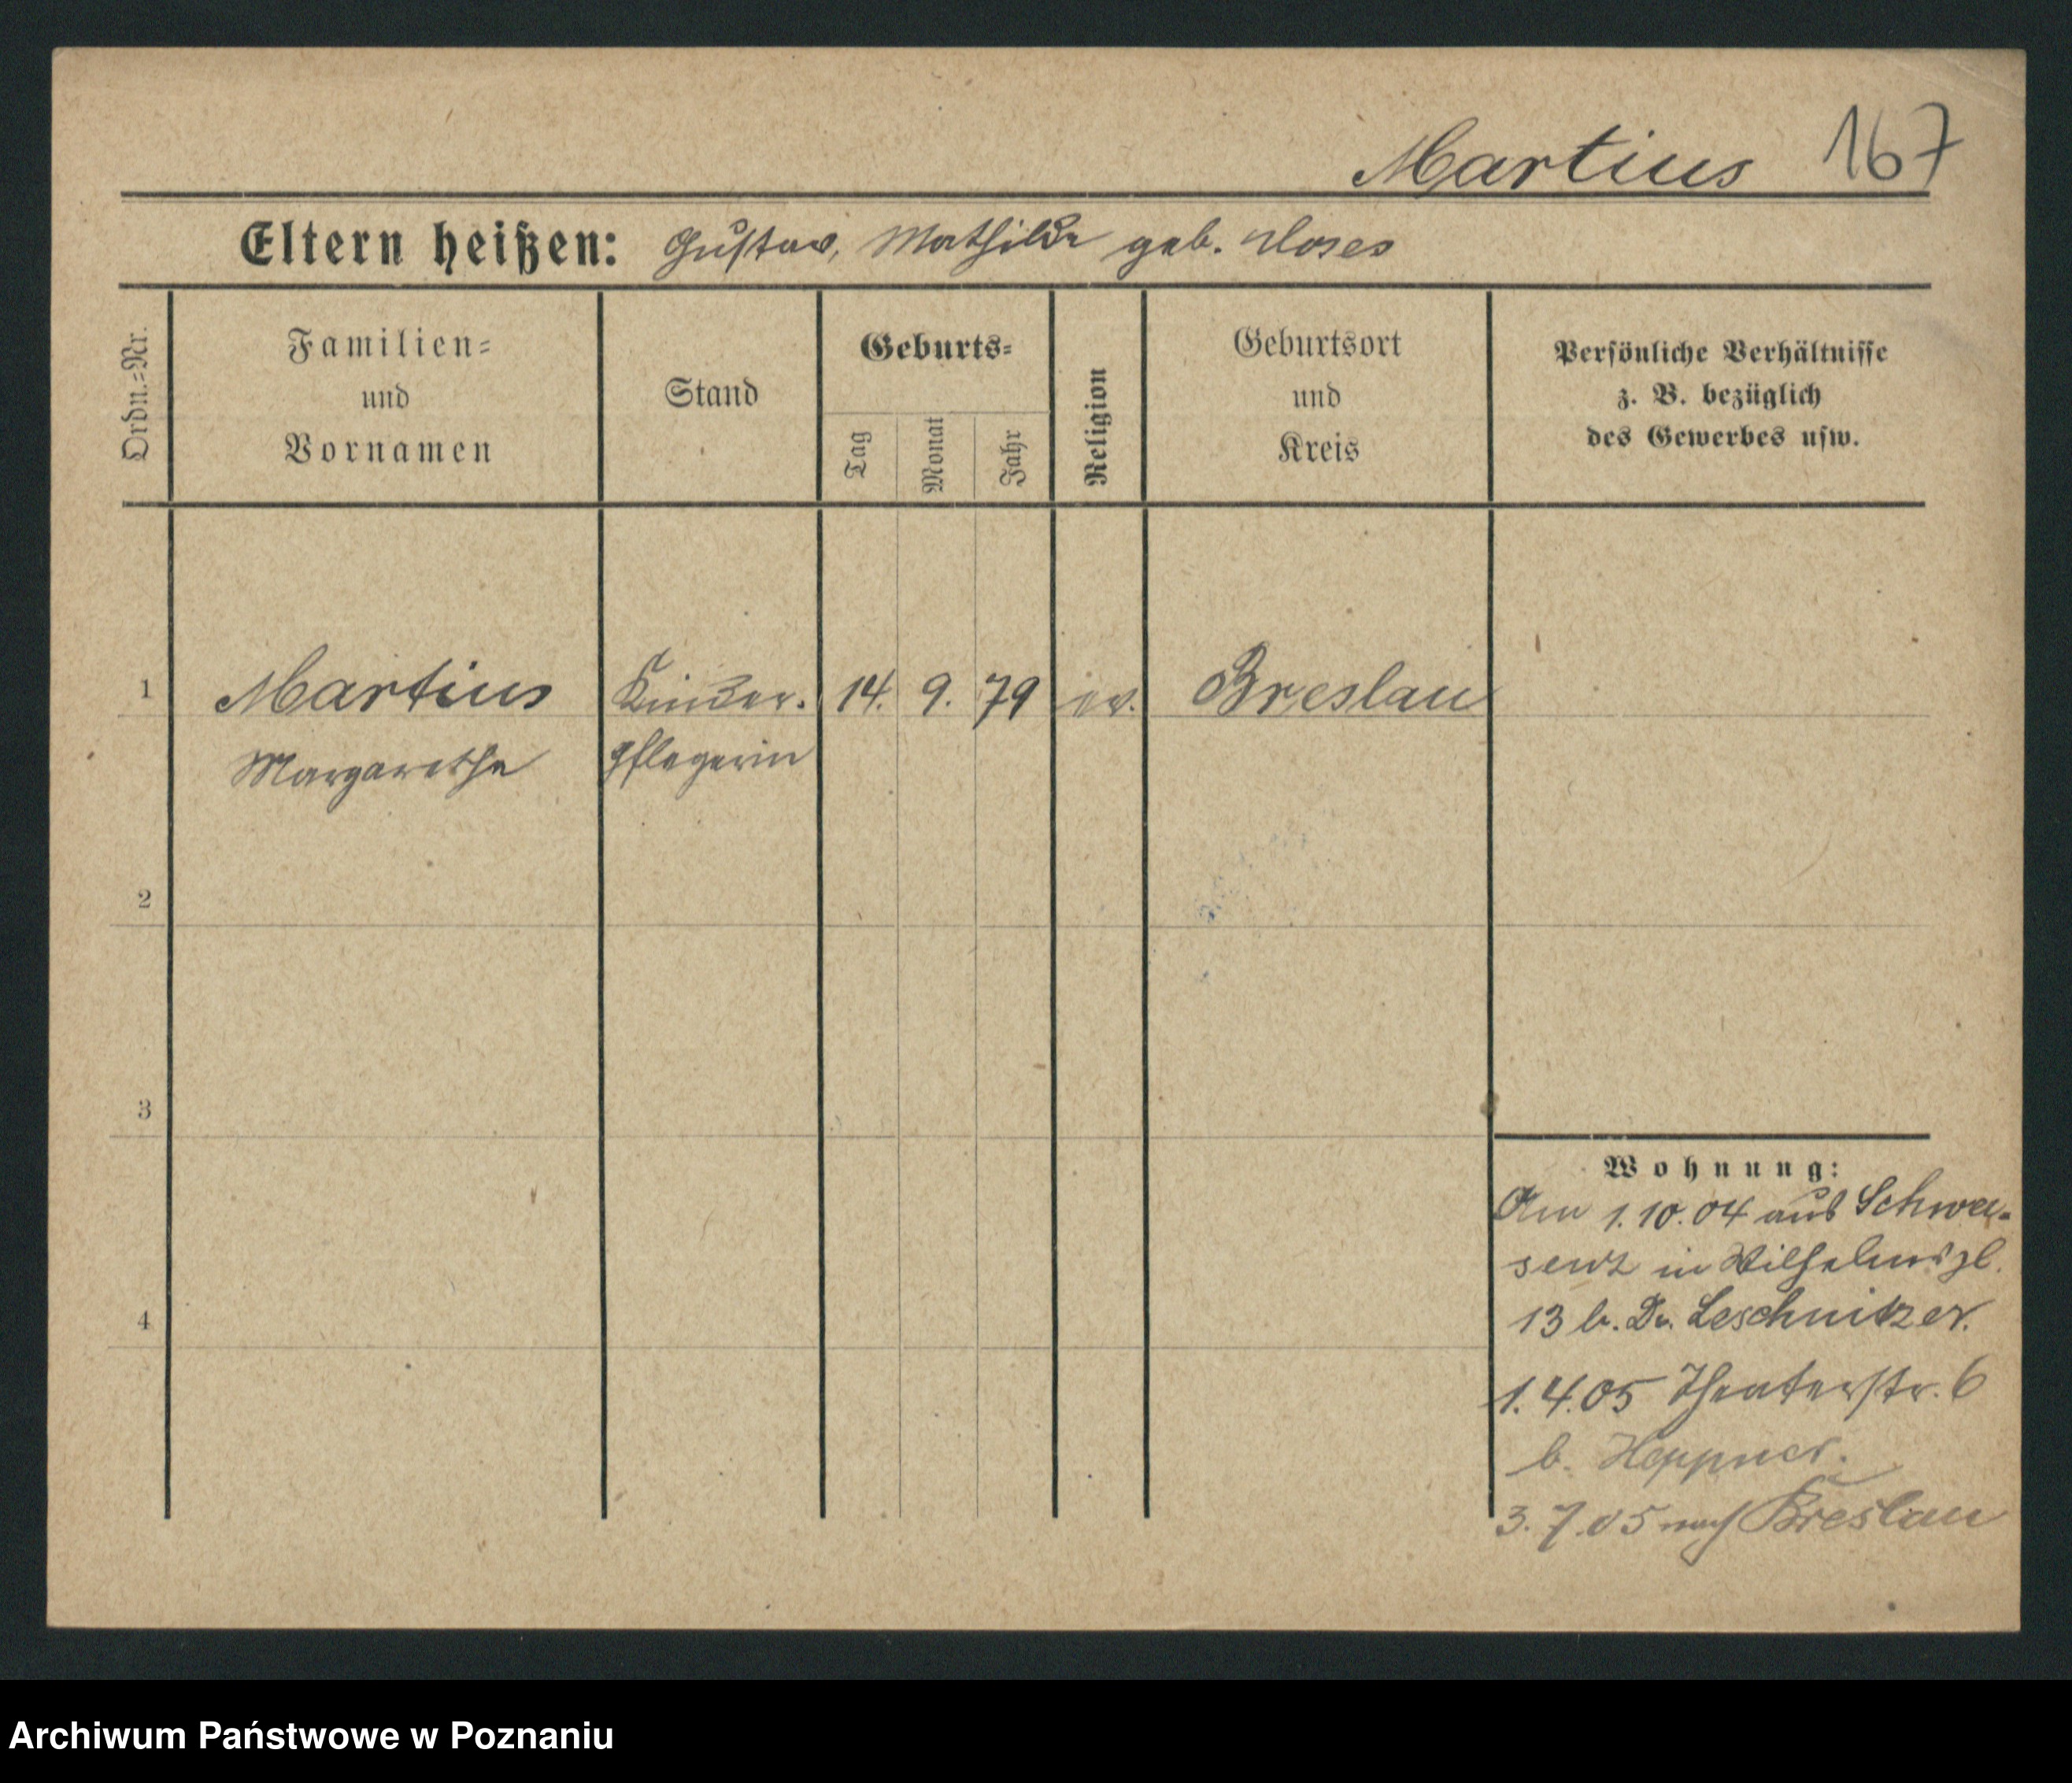 Martius 167
Eltern heißen: Gustav, Mathilde geb.
Ordn.=Nr.
Familien=
und
Vornamen
Stand
Geburts=
Tag
Monat
Jahr
Religion
Geburtsort
und
Kreis
Persönliche Verhältnisse
z. B. bezüglich
des Gewerbes usw.
1 Martius Kinder. 14. 9. 79 ev. Breslau
Margarethe pflegerin
2
3
4
Wohnung:
Am 1.10.04 aus Schwer-
senz in Wilhelmspl.
13 b. Dr. Leschnitzer.
1.4.05 Theaterstr. 6
b. Heppner.
3.7.05 nach Breslau
Archiwum Państwowe w Poznaniu